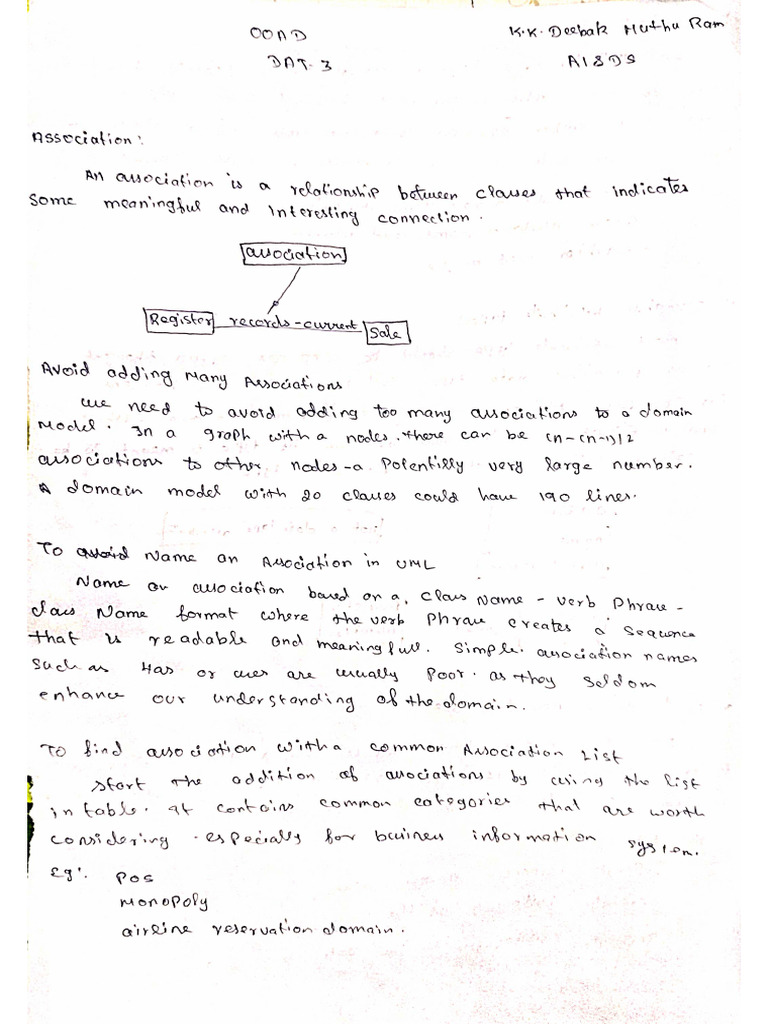 OOAD
K.K. Deebak Muthu Ram
DAT-3
AI&DS
Association:
An association is a relationship between classes that indicates
some meaningful and interesting connection.
association
Register records-current Sale
Avoid adding Many Associations
We need to avoid adding too many associations to a domain
Model. In a graph with a nodes. there can be (n-(n-1))/2
associations to other nodes-a Potentilly very large number.
A domain model with 20 classes could have 190 lines.
To Name an Association in UML
Name an association based on a, Class Name - Verb Phrase -
class Name format where the verb Phrase creates a sequence
that is readable and meaningfull. Simple association names
such as Has or uses are usually Poor. as they seldom
enhance our understanding of the domain.
To find association with a common Association List
start the addition of associations by using the list
in table. It contains common categories that are worth
considering. especially for business information system.
Eg:. POS
Monopoly
airline reservation domain.